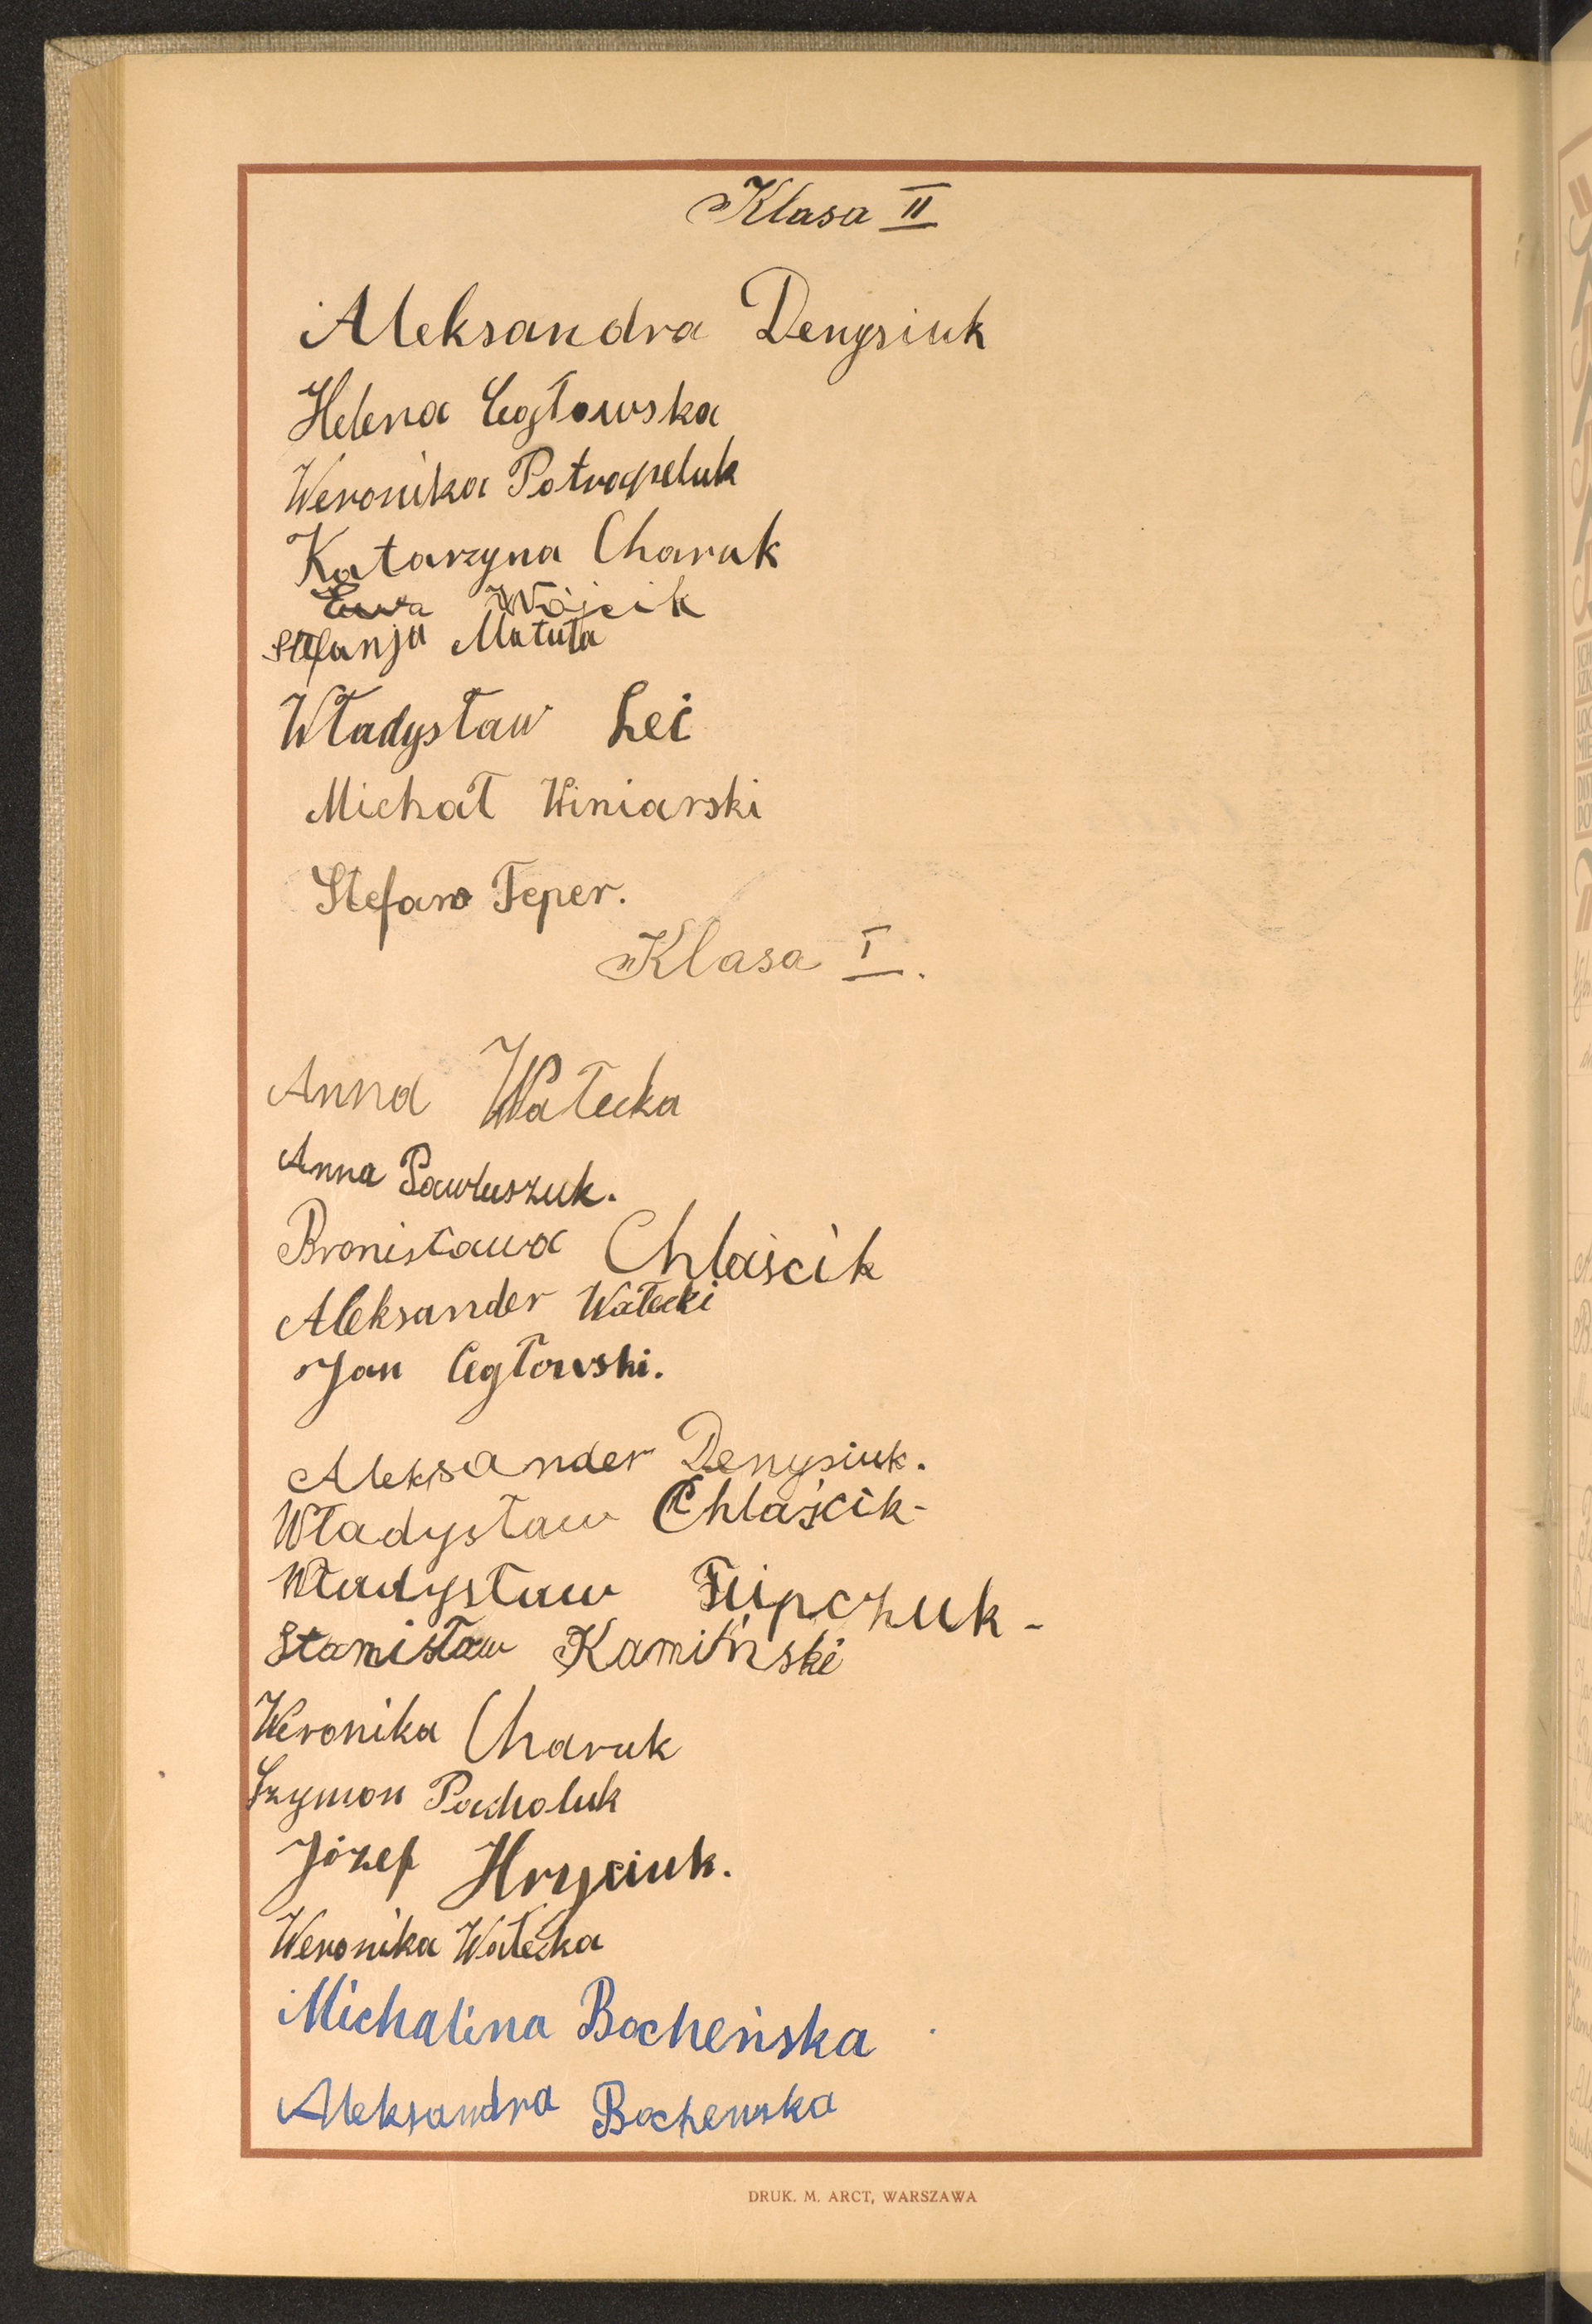 Klasa II
Aleksandra Denysiuk
Helena Cegłowska
Weronika Potrapeluk
Katarzyna Charuk
Ewa Wójcik
Stefanja Matuła
Władysław Leć
Michał Winiarski
Stefan Teper.
Klasa I.
Anna Wałecka
Anna Pawluszuk.
Bronisława Chlaścik
Aleksander Wałecki
Jan Cegłowski.
Aleksander Denysiuk.
Władysław Chlaścik-
Władysław Filipczuk-
Stanisław Kamiński
Weronika Charuk
Szymon Pacholuk
Józef Hryciuk.
Weronika Wałecka
Michalina Bocheńska
Aleksandra Bochenska
DRUK. M. ARCT, WARSZAWA